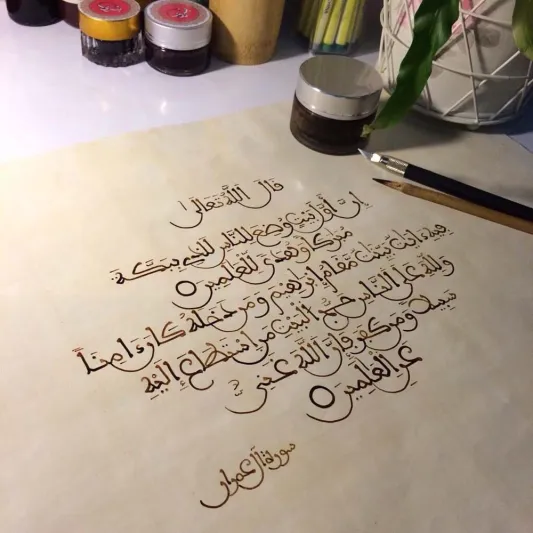 قال الله تعالى
إن أول بيت وضع للناس للذي ببكة
مباركا وهدى للعلمين
فيه ءايات بينات مقام إبراهيم ومن دخله كان ءامنا
ولله على الناس حج البيت من استطاع إليه
سبيلا ومن كفر فإن الله غني
عن العلمين
سورة آل عمران